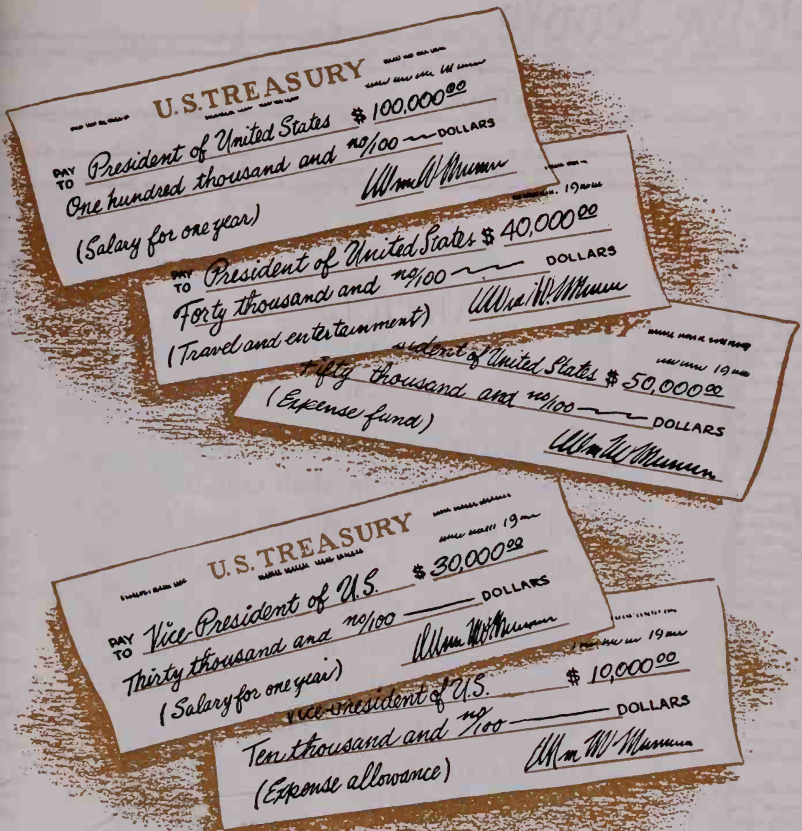 U.S. TREASURY
PAY TO President of United States $ 100,000 00
One hundred thousand and no/100 DOLLARS
(Salary for one year)
19
PAY TO President of United States $ 40,000 00
Forty thousand and no/100 DOLLARS
(Travel and entertainment)
19
sident of United States $ 50,000 00
Fifty thousand and no/100 DOLLARS
(Expense fund)
U.S. TREASURY
19
PAY TO Vice-President of U.S. $ 30,000 00
Thirty thousand and no/100 DOLLARS
(Salary for one year)
19
Vice-President of U.S. $ 10,000 00
Ten thousand and no/100 DOLLARS
(Expense allowance)